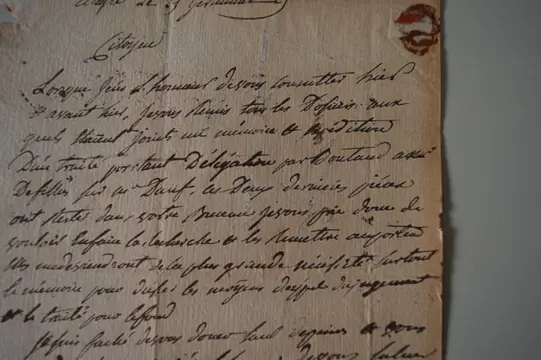 le 25 Germinal
Citoyen
Lorsque j'eus L'honneur de vous consulter hier
et avant hier, je vous Remis tous les Dossiers aux
quels Etaient joints un mémoire et Expédition
D'un traité portant Délégation par Boutard a
Defilles sur mr Dauf, ces Deux dernieres pièces
ont Resté dans votre Bureau je vous prie donc de
vouloir En faire la Recherche et les Remettre au porteur
Elles me deviendront de la plus grande nécéssité surtout
le mémoire pour du les moyens d'appel du jugement
et le traité pour le fond
je suis faché de vous donner tant de peines et vous
de vous